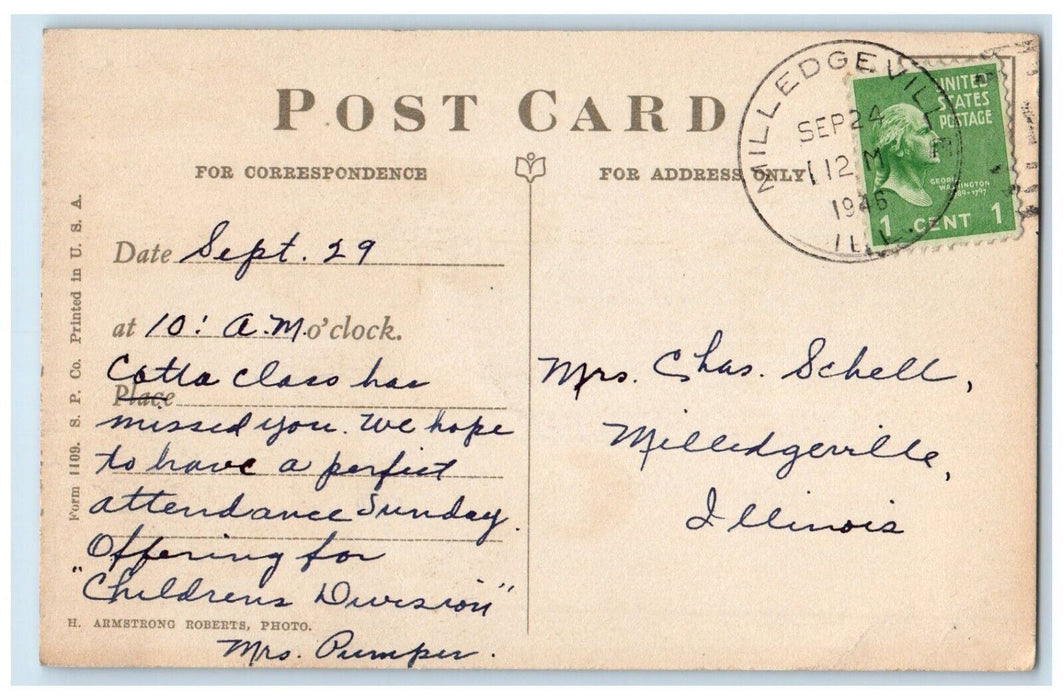 POST CARD
FOR CORRESPONDENCE
FOR ADDRESS ONLY
MILLEDGEVILLE
SEP 24
12 M
1946
ILL.
UNITED
STATES
POSTAGE
GEORGE
WASHINGTON
1789-1797
1 CENT 1
Form 1109. S. P. Co. Printed in U. S. A.
Date Sept. 29
at 10: A.M. o'clock.
Place
Catta class has
missed you. We hope
to have a perfect
attendance Sunday.
Offering for
"Childrens Division"
H. ARMSTRONG ROBERTS, PHOTO.
Mrs. Pumper.
Mrs. Chas. Schell,
Milledgeville,
Illinois